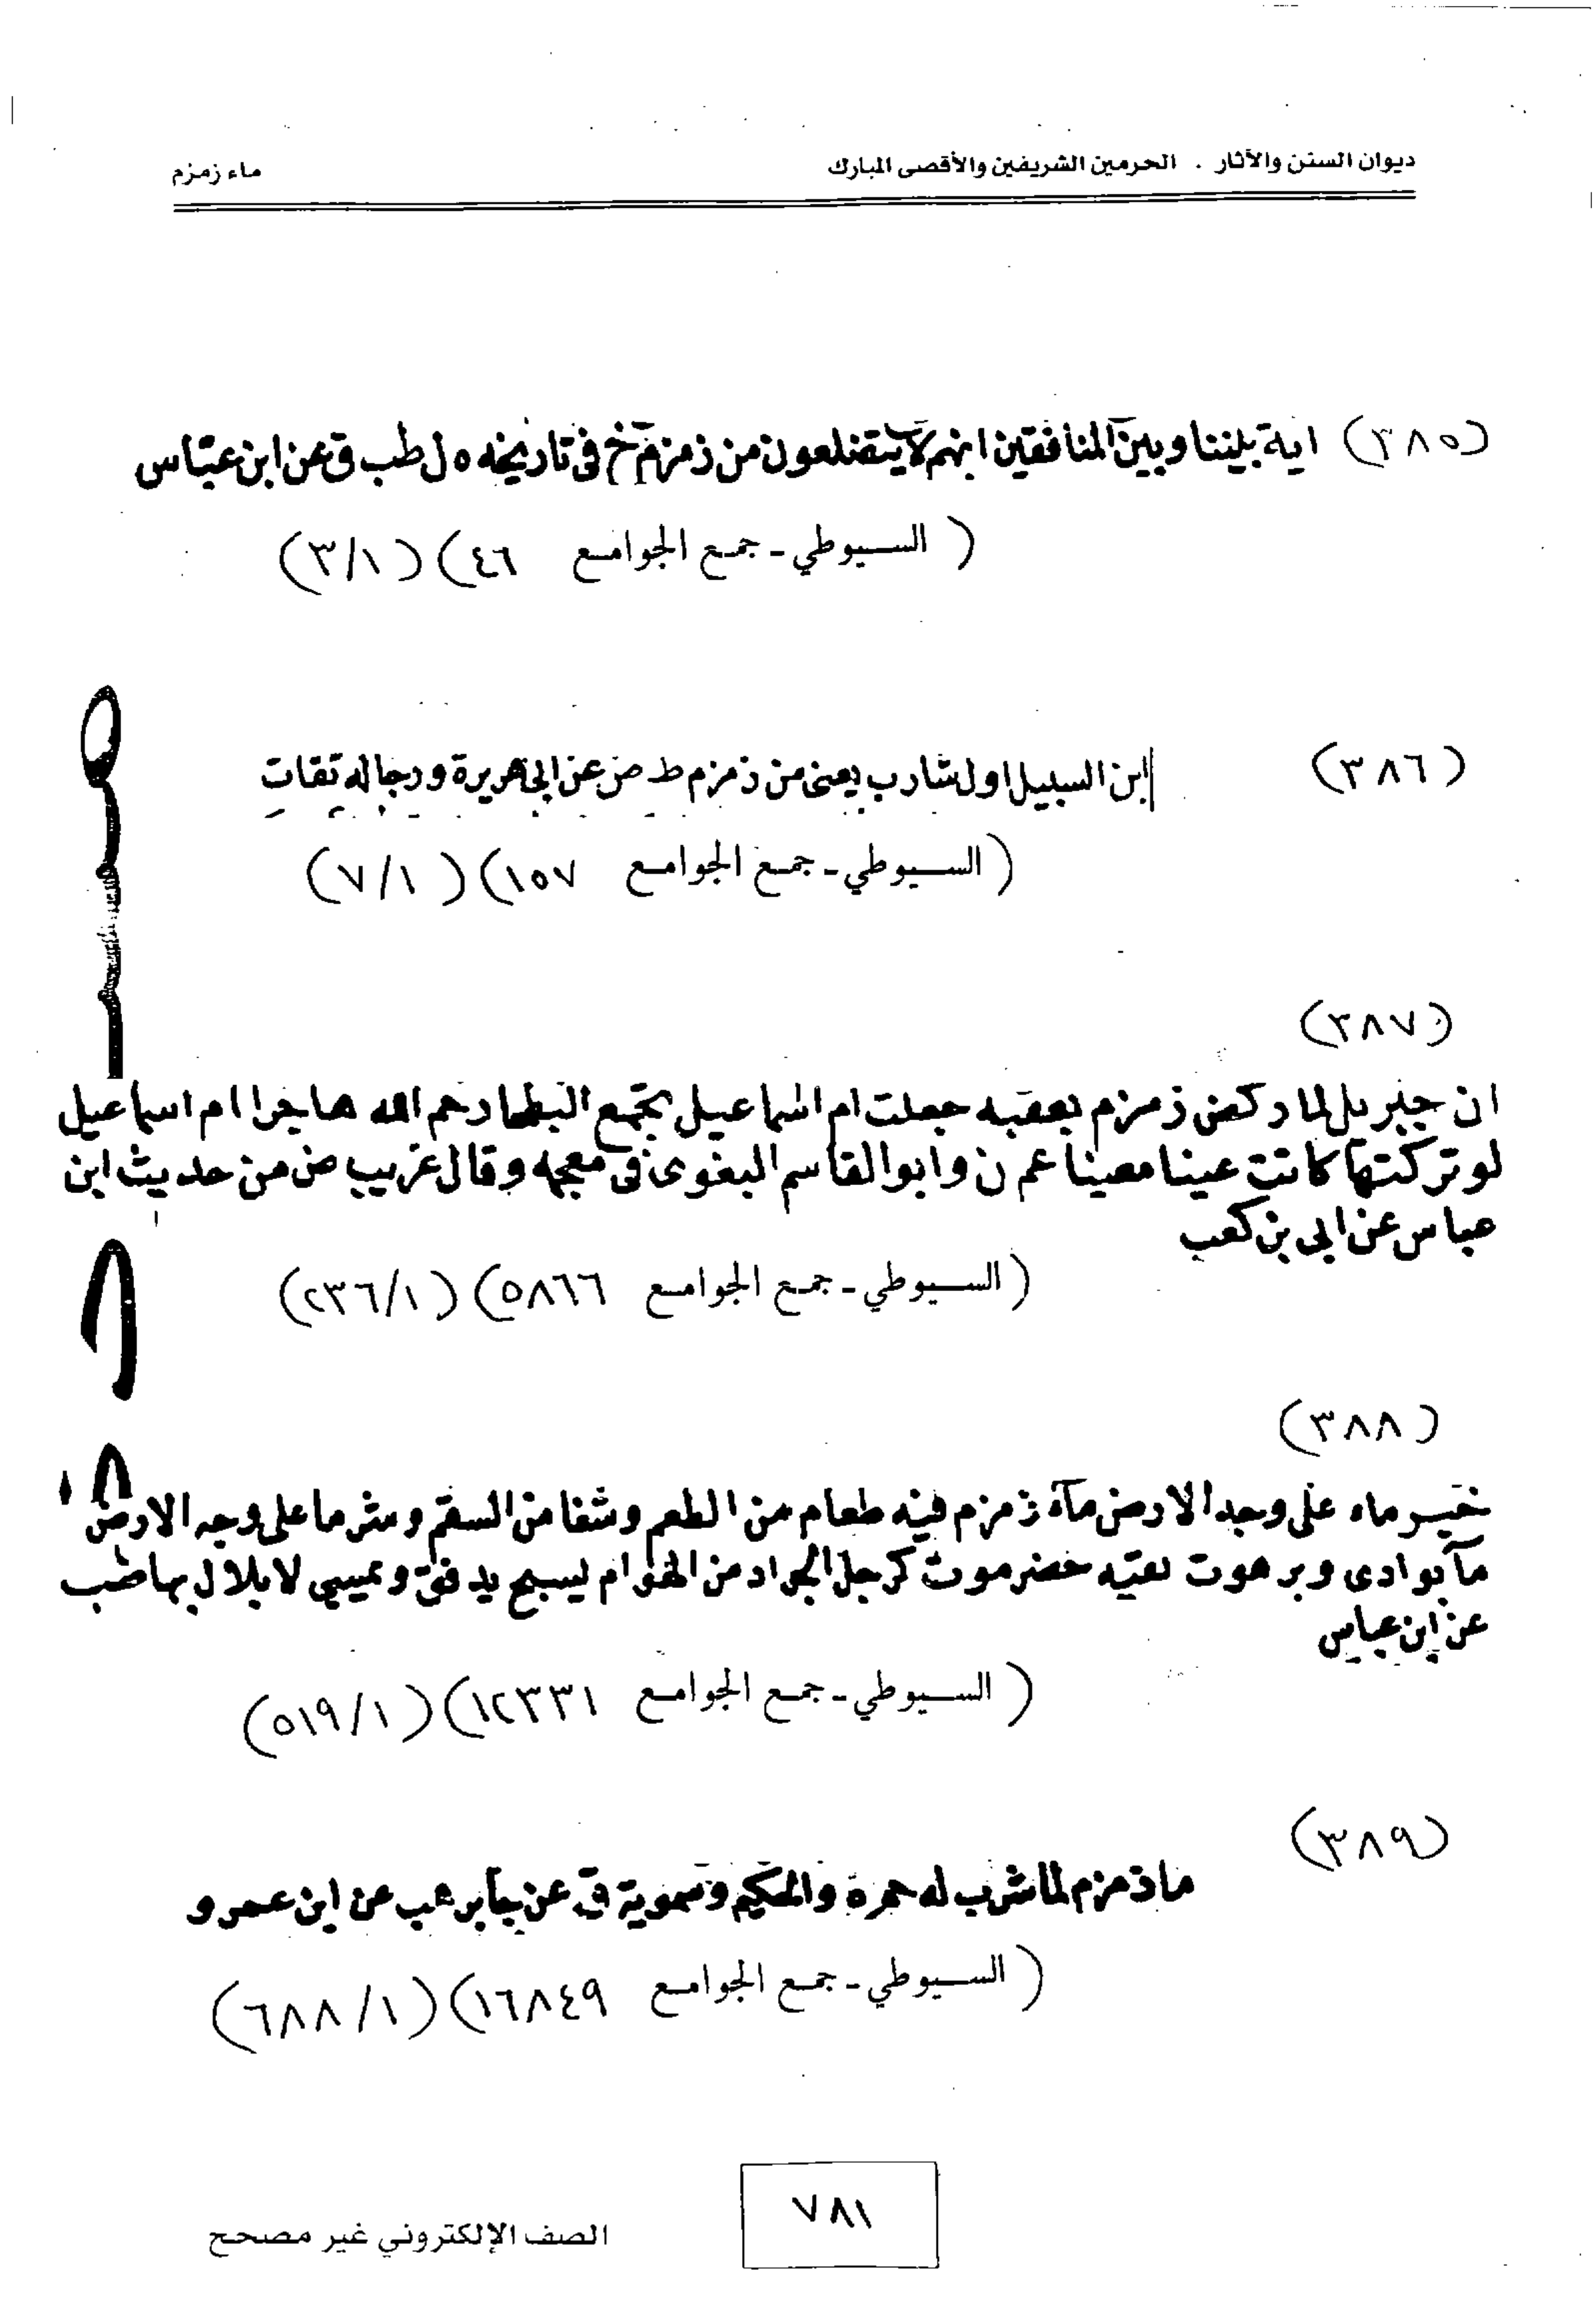 ديوان السنن والآثار . الحرمين الشريفين والأقصى المبارك
ماء زمزم
(٣٨٥) اية بيننا وبين المنافقين انهم لا يتضلعون من زمزم خ فى تاريخه ه ل طب ق عن ابن عباس
(السيوطي - جمع الجوامع ٤٦) (٣/١)
(٣٨٦) ابن السبيل اول شارب يعنى من زمزم ط ص عن ابى هريرة ورجاله ثقات
(السيوطي - جمع الجوامع ١٥٧) (٧/١)
(٣٨٧)
ان جبريل لما ركض زمزم بعقبه جعلت ام اسماعيل تجمع البطحا رحم الله هاجرا ام اسماعيل
لو تركتها كانت عينا معينا عم ن وابو القاسم البغوى فى معجمه وقال غريب ض من حديث ابن
عباس عن ابى بن كعب
(السيوطي - جمع الجوامع ٥٨٦٦) (٢٣٦/١)
(٣٨٨)
خير ماء على وجه الارض مآء زمزم فيه طعام من الطعم وشفا من السقم وشر ما على وجه الارض
مآ بوادى وبرهوت بقيه حضرموت كرجل الجراد من الهوام يسبح يدفق ويمسى لا بلال بها طب
عن ابن عباس
(السيوطي - جمع الجوامع ١٢٣٣١) (٥١٩/١)
(٣٨٩)
ما زمزم لما شرب له حم ه والحكيم وسموية ق عن جابر هب عن ابن عمرو
(السيوطي - جمع الجوامع ١٦٨٤٩) (٦٨٨/١)
٧٨١
الصف الإلكتروني غير مصحح